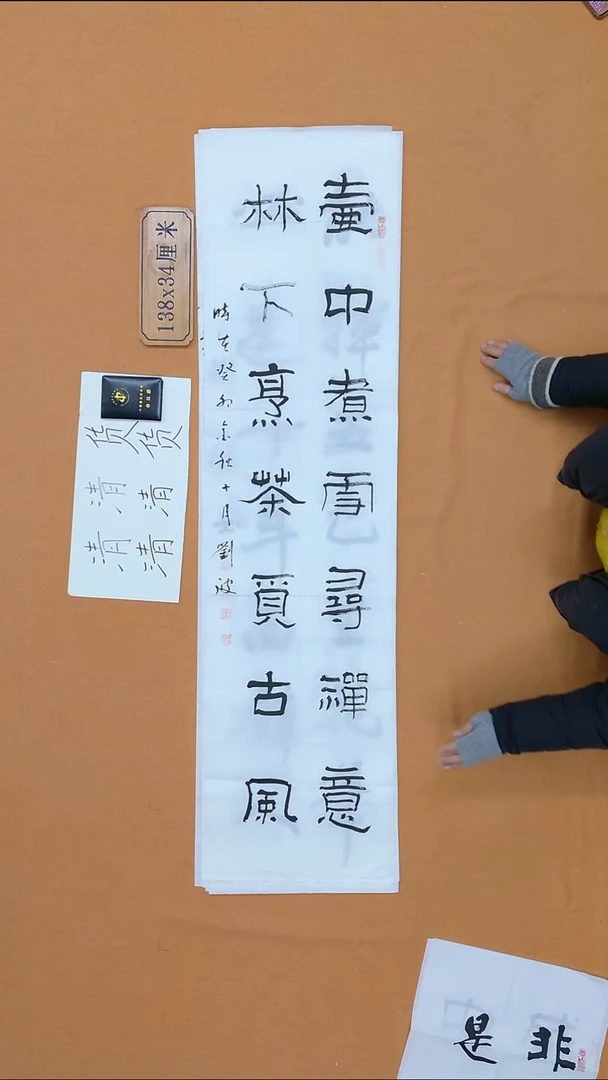 壷中煮雪尋禪意
林下烹茶覓古風
時在癸卯金秋十月 劉波
138x34厘米
货货
清清
清清
非是